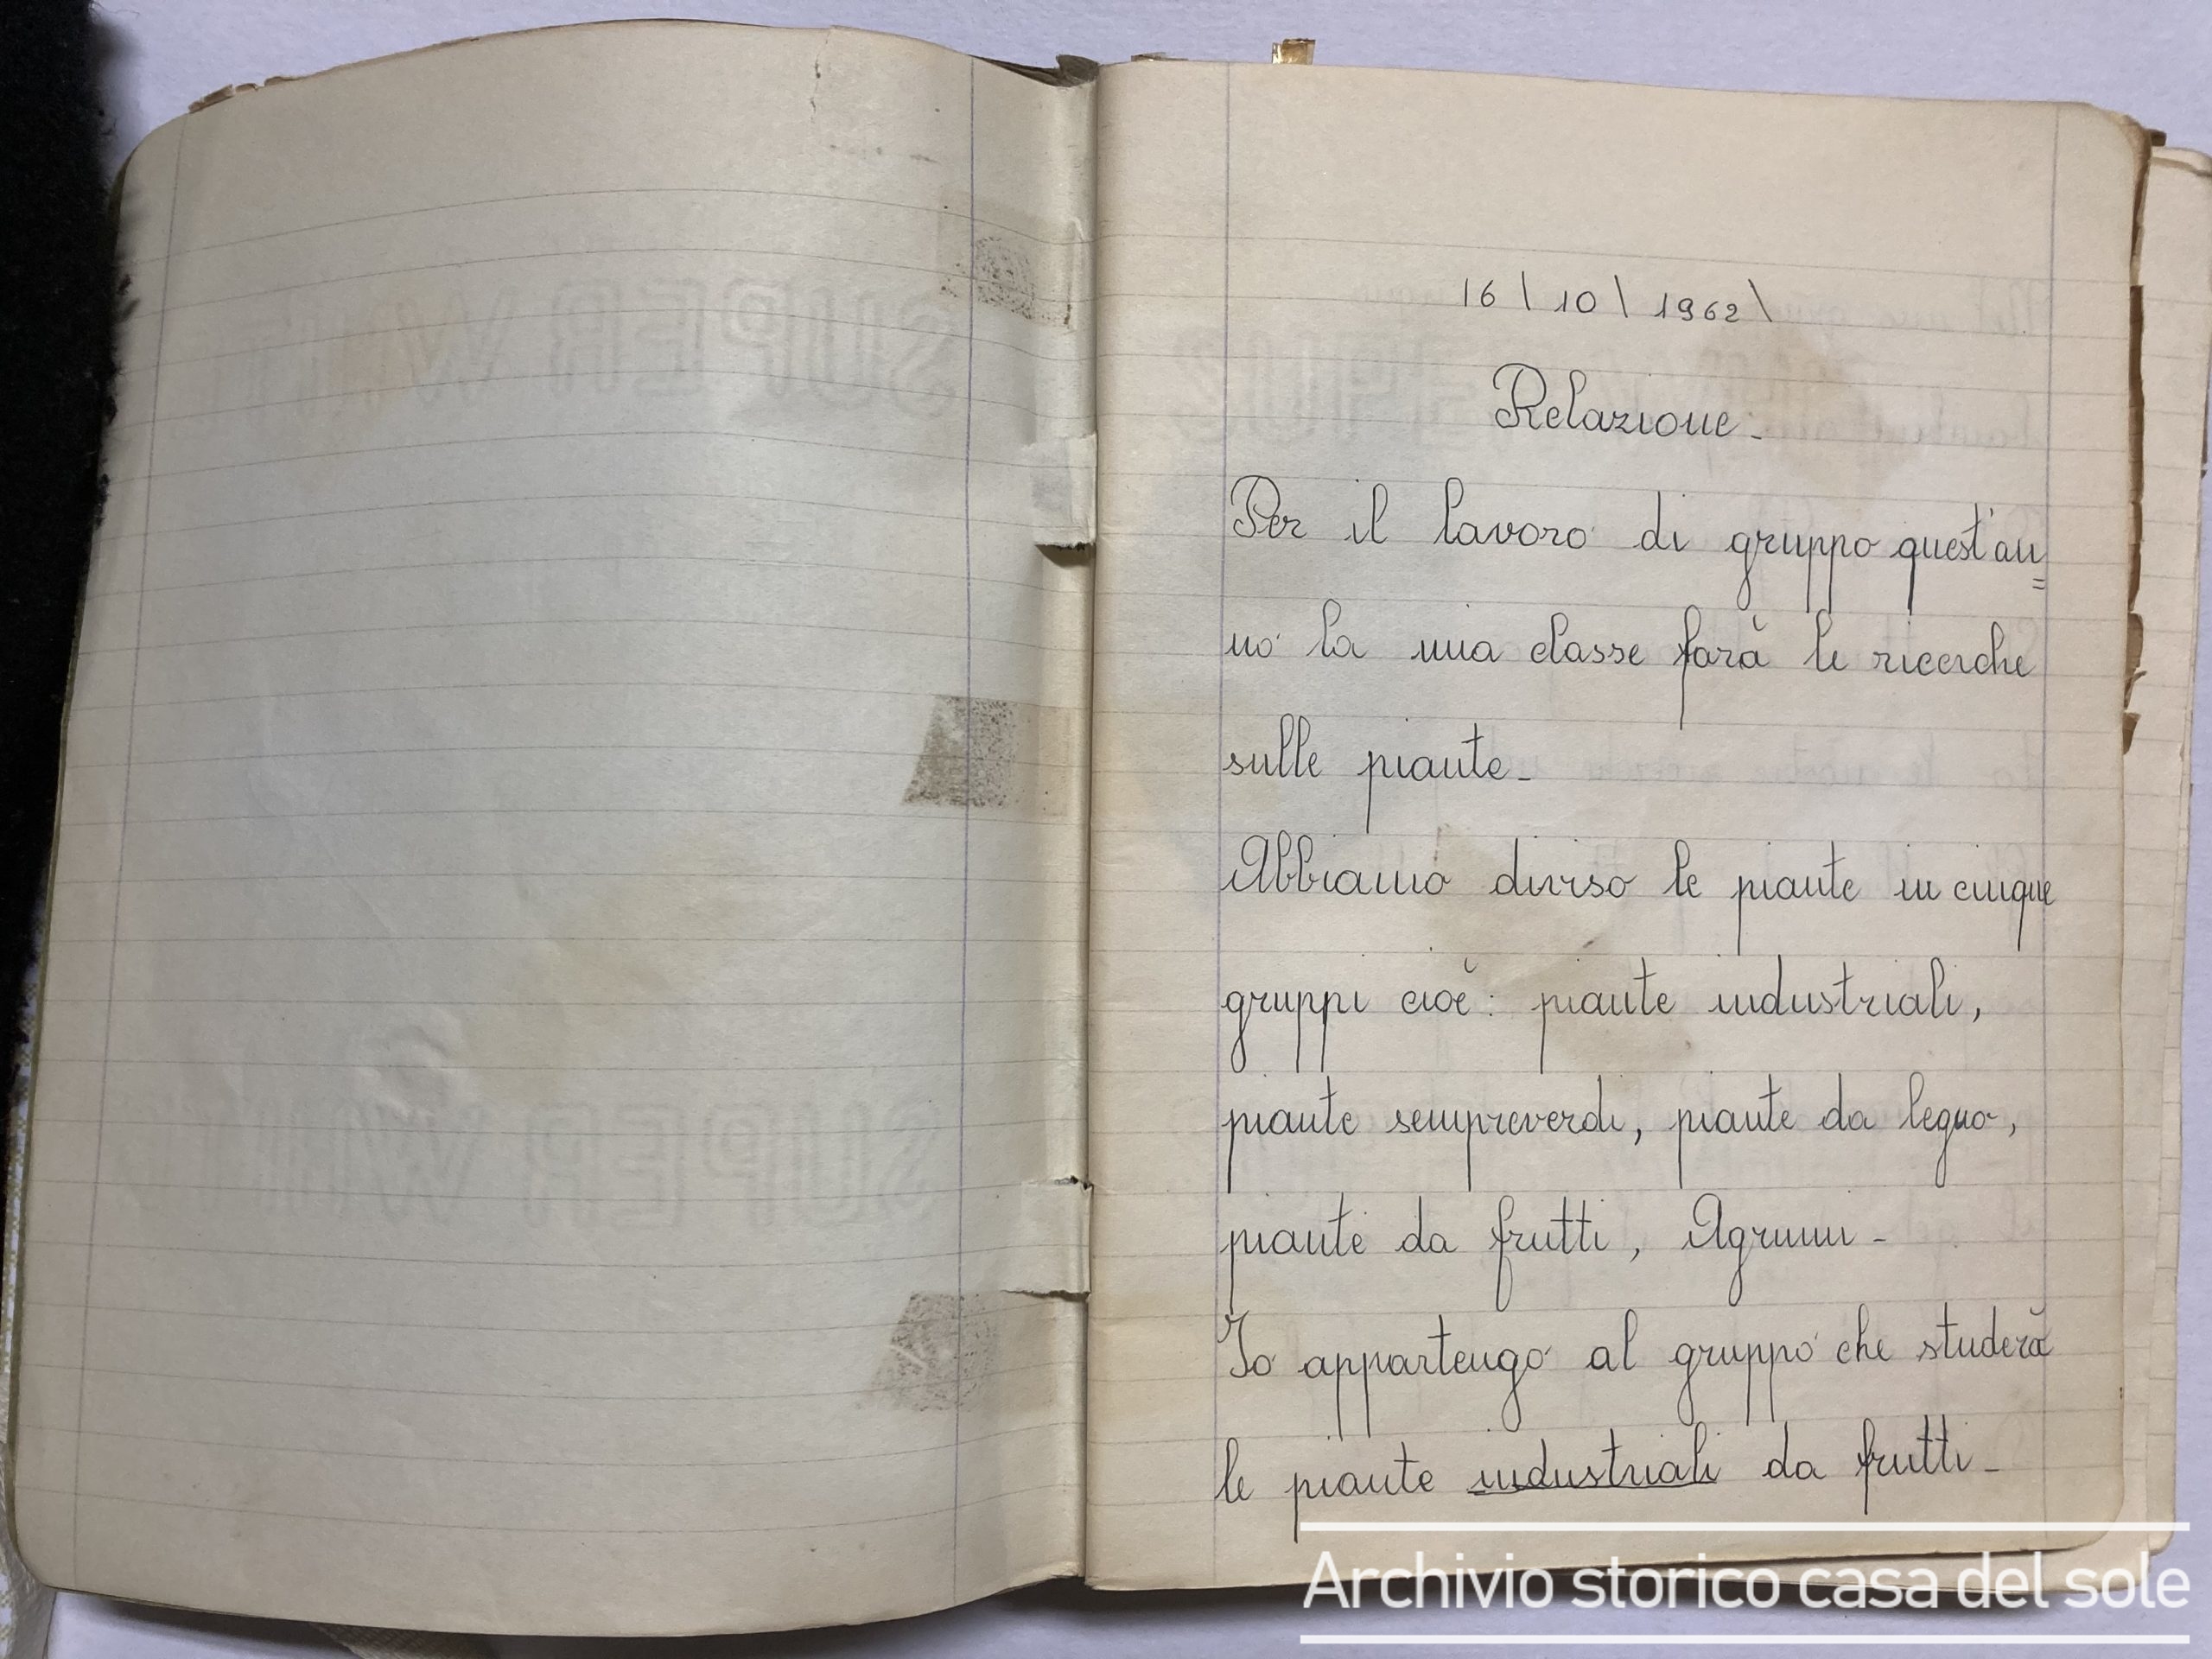 16 \ 10 \ 1962 \
Relazione.
Per il lavoro di gruppo quest'an=
no la mia classe farà le ricerche
sulle piante.
Abbiamo diviso le piante in cinque
gruppi cioè: piante industriali,
piante sempreverdi, piante da legno,
piante da frutti, Agrumi.
Io appartengo al gruppo che studerà
le piante industriali da frutti.
Archivio storico casa del sole